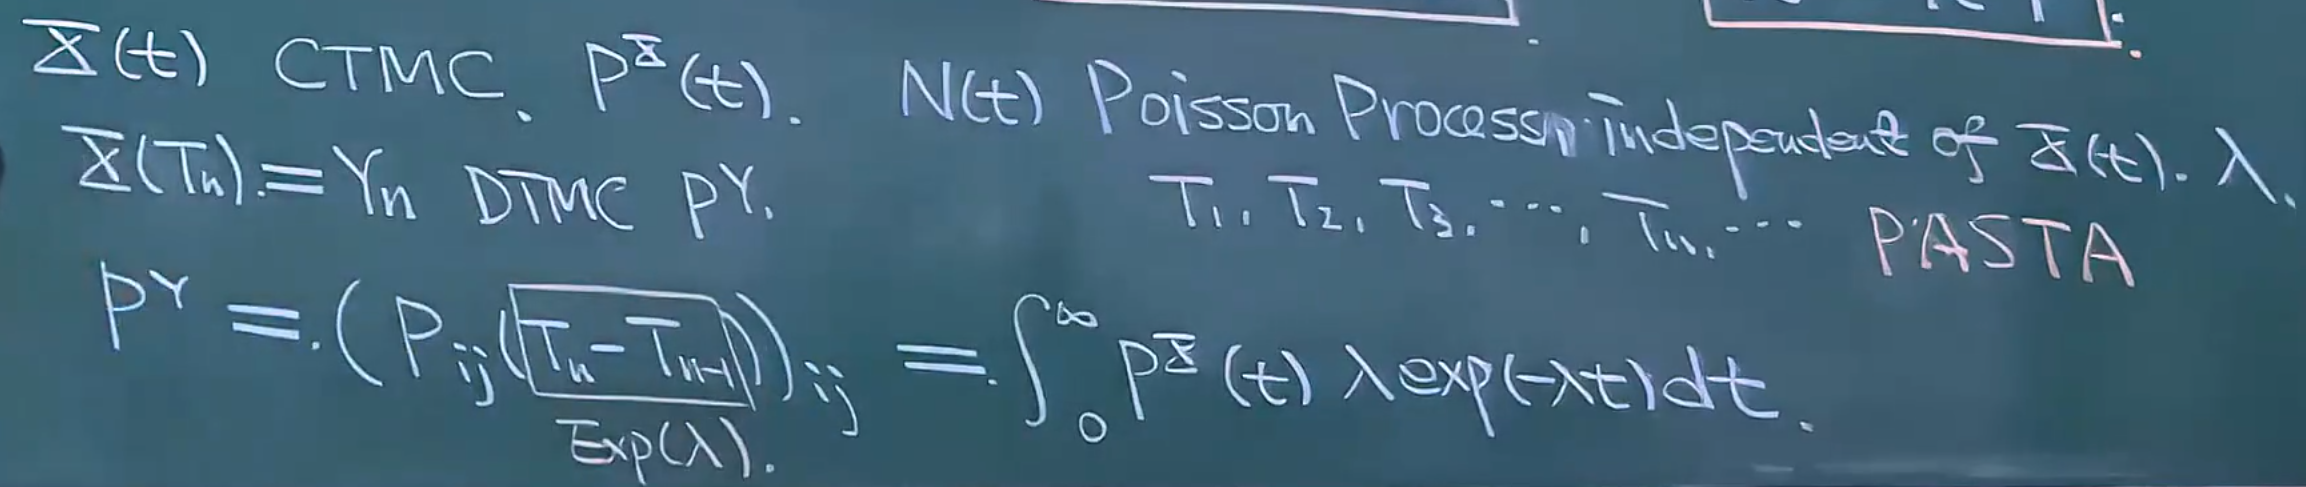 X(t) CTMC. P^X(t). N(t) Poisson Process independent of X(t). λ.
X(Tn) = Yn DTMC P^Y. T1, T2, T3, ..., Tn, ... PASTA
P^Y = (Pij(Tn-Tn-1))ij = ∫_0^∞ P^X(t) λexp(-λt)dt.
Exp(λ).